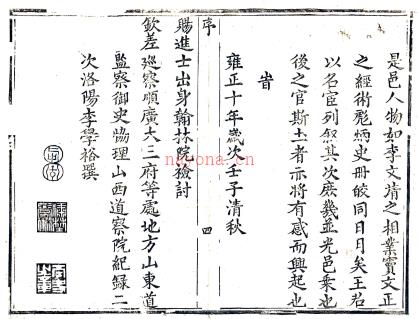 是邑人物如李文靖之相業竇文正
之經術彪炳史冊皎同日月矣王君
以名宦列叙其次庶幾並光邑乗也
後之官斯土者亦將有感而興起也
旹
雍正十年歲次壬子清秋
序
四
賜進士出身翰林院檢討
欽差廵察順廣大三府等處地方山東道
監察御史恊理山西道察院紀録二
次洛陽李學裕撰
nayona.cn